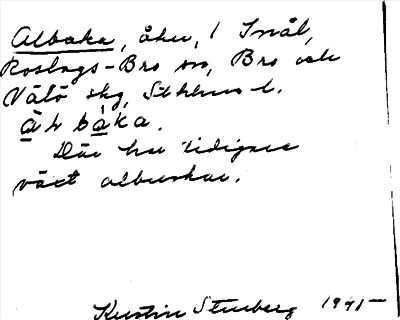 Albaka, åker, / Snål,
Roslags-Bro sn, Bro och
Vätö skg, Sthlms l.
àlbàka.
Där har tidigare
växt albuskar.
Kerstin Stenberg 1941